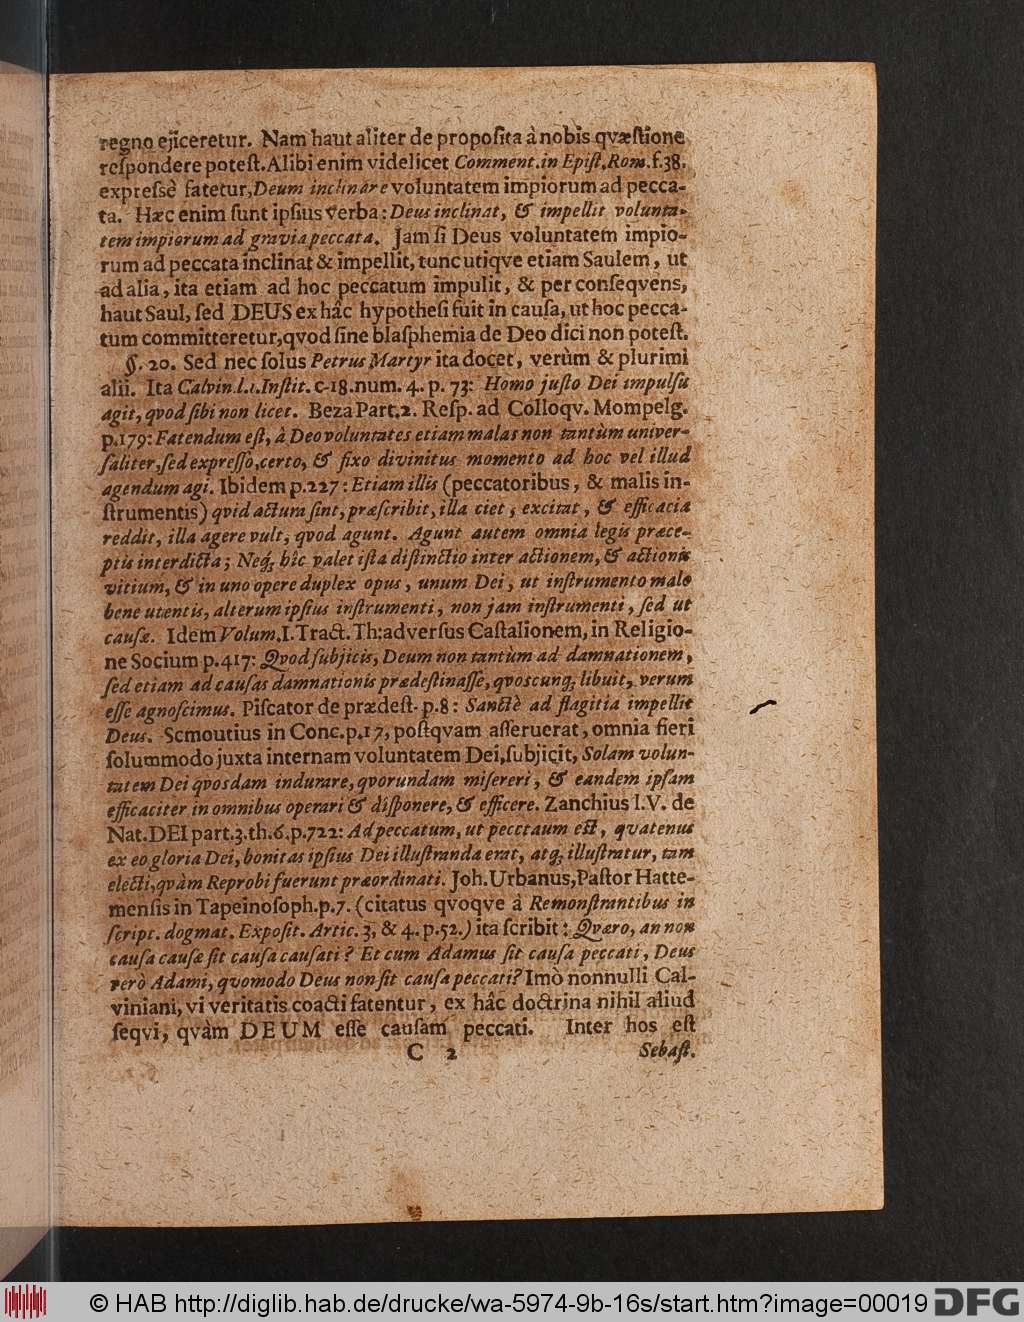 regno ejiceretur. Nam haut aliter de proposita à nobis qvæstione
respondere potest. Alibi enim videlicet Comment. in Epist. Rom. f. 38.
expressè fatetur, Deum inclinare voluntatem impiorum ad pecca-
ta. Hæc enim sunt ipsius verba: Deus inclinat, & impellit volunta-
tem impiorum ad gravia peccata. Jam si Deus voluntatem impio-
rum ad peccata inclinat & impellit, tunc utiqve etiam Saulem, ut
ad alia, ita etiam ad hoc peccatum impulit, & per conseqvens,
haut Saul, sed DEUS ex hâc hypothesi fuit in causa, ut hoc pecca-
tum committeretur, qvod sine blasphemia de Deo dici non potest.
§. 20. Sed nec solus Petrus Martyr ita docet, verùm & plurimi
alii. Ita Calvin. l. 1. Instit. c. 18. num. 4. p. 73: Homo justo Dei impulsu
agit, qvod sibi non licet. Beza Part. 2. Resp. ad Colloqv. Mompelg.
p. 179: Fatendum est, à Deo voluntates etiam malas non tantùm univer-
saliter, sed expressò, certo, & fixo divinitus momento ad hoc vel illud
agendum agi. Ibidem p. 227: Etiam illis (peccatoribus, & malis in-
strumentis) qvid actum sint, præscribit, illa ciet, excitat, & efficacia
reddit, illa agere vult, qvod agunt. Agunt autem omnia legis præce-
ptis interdicta; Neq; hîc valet ista distinctio inter actionem, & actionis
vitium, & in uno opere duplex opus, unum Dei, ut instrumento malo
bene utentis, alterum ipsius instrumenti, non jam instrumenti, sed ut
causæ. Idem Volum. I. Tract. Th: adversus Castalionem, in Religio-
ne Socium p. 417: Qvod subjicis, Deum non tantùm ad damnationem,
sed etiam ad causas damnationis prædestinasse, qvoscunq; libuit, verum
esse agnoscimus. Piscator de prædest. p. 8: Sanctè ad flagitia impellit
Deus. Scmoutius in Conc. p. 17, postqvam asseruerat, omnia fieri
solummodo juxta internam voluntatem Dei, subjicit, Solam volun-
tatem Dei qvosdam indurare, qvorundam misereri, & eandem ipsam
efficaciter in omnibus operari & disponere, & efficere. Zanchius l. V. de
Nat. DEI part. 3. th. 6. p. 722: Ad peccatum, ut pecctaum est, qvatenus
ex eo gloria Dei, bonitas ipsius Dei illustranda erat, atq; illustratur, tam
electi, qvàm Reprobi fuerunt præordinati. Joh. Urbanus, Pastor Hatte-
mensis in Tapeinosoph. p. 7. (citatus qvoqve â Remonstrantibus in
script. dogmat. Exposit. Artic. 3, & 4. p. 52.) ita scribit: Qværo, an non
causa causæ sit causa causati? Et cum Adamus sit causa peccati, Deus
verò Adami, quomodo Deus non sit causa peccati? Imò nonnulli Cal-
viniani, vi veritatis coacti fatentur, ex hâc doctrina nihil aliud
seqvi, qvàm DEUM esse causam peccati. Inter hos est
C 2 Sebast.
© HAB http://diglib.hab.de/drucke/wa-5974-9b-16s/start.htm?image=00019 DFG